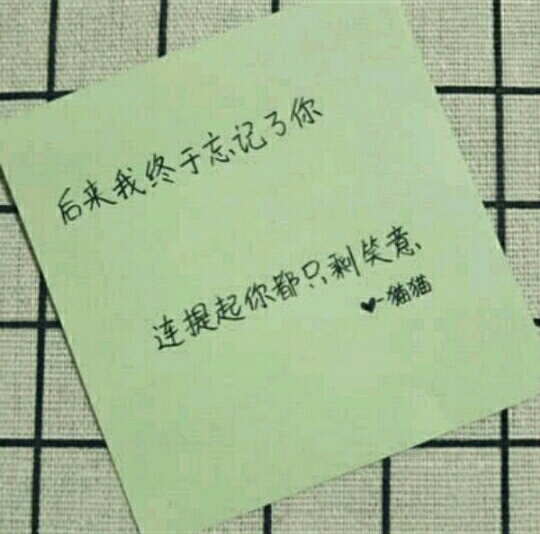 后来我终于忘记了你
连提起你都只剩笑意、
❤-猫猫